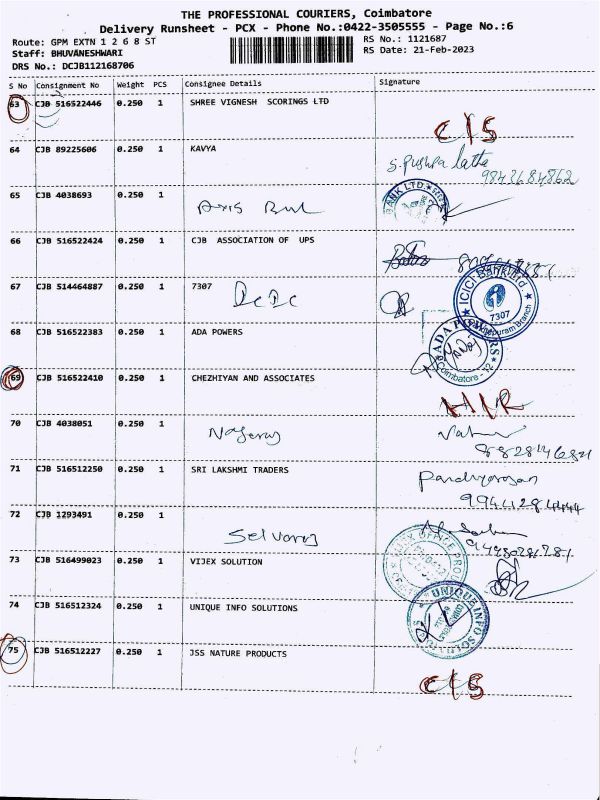 THE PROFESSIONAL COURIERS, Coimbatore
Delivery Runsheet - PCX - Phone No.:0422-3505555 - Page No.:6
Route: GPM EXTN 1 2 6 8 ST
RS No.: 1121687
Staff: BHUVANESHWARI
RS Date: 21-Feb-2023
DRS No.: DCJB112168706
S No Consignment No Weight PCS Consignee Details Signature
63 CJB 516522446 0.250 1 SHREE VIGNESH SCORINGS LTD
C/S
64 CJB 89225606 0.250 1 KAVYA
S. Pushpa latha
9842684862
65 CJB 4038693 0.250 1
Axis
BANK LTD.
66 CJB 516522424 0.250 1 CJB ASSOCIATION OF UPS
67 CJB 514464887 0.250 1 7307
ICICI Bank Ltd.
7307
68 CJB 516522383 0.250 1 ADA POWERS
ADA POWERS
Coimbatore - 12
69 CJB 516522410 0.250 1 CHEZHIYAN AND ASSOCIATES
70 CJB 4038051 0.250 1 Nagaraj
71 CJB 516512250 0.250 1 SRI LAKSHMI TRADERS
72 CJB 1293491 0.250 1
Selvaraj
73 CJB 516499023 0.250 1 VIJEX SOLUTION
74 CJB 516512324 0.250 1 UNIQUE INFO SOLUTIONS
UNIQUE INFO SOLUTIONS
75 CJB 516512227 0.250 1 JSS NATURE PRODUCTS
C/S